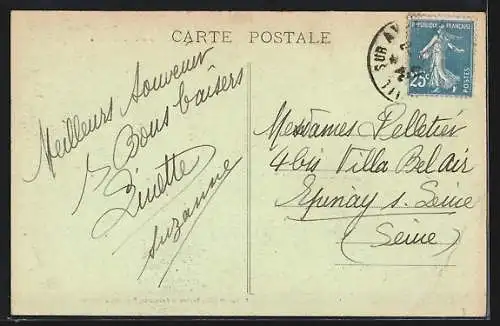 CARTE POSTALE
REPUBLIQUE FRANÇAISE
25c
POSTES
SUR AV
Meilleurs Souvenir
Bons baisers
Ginette
Suzanne
Mesdames Pelletier
4 bis Villa Bel air
Epinay s. Seine
(Seine)